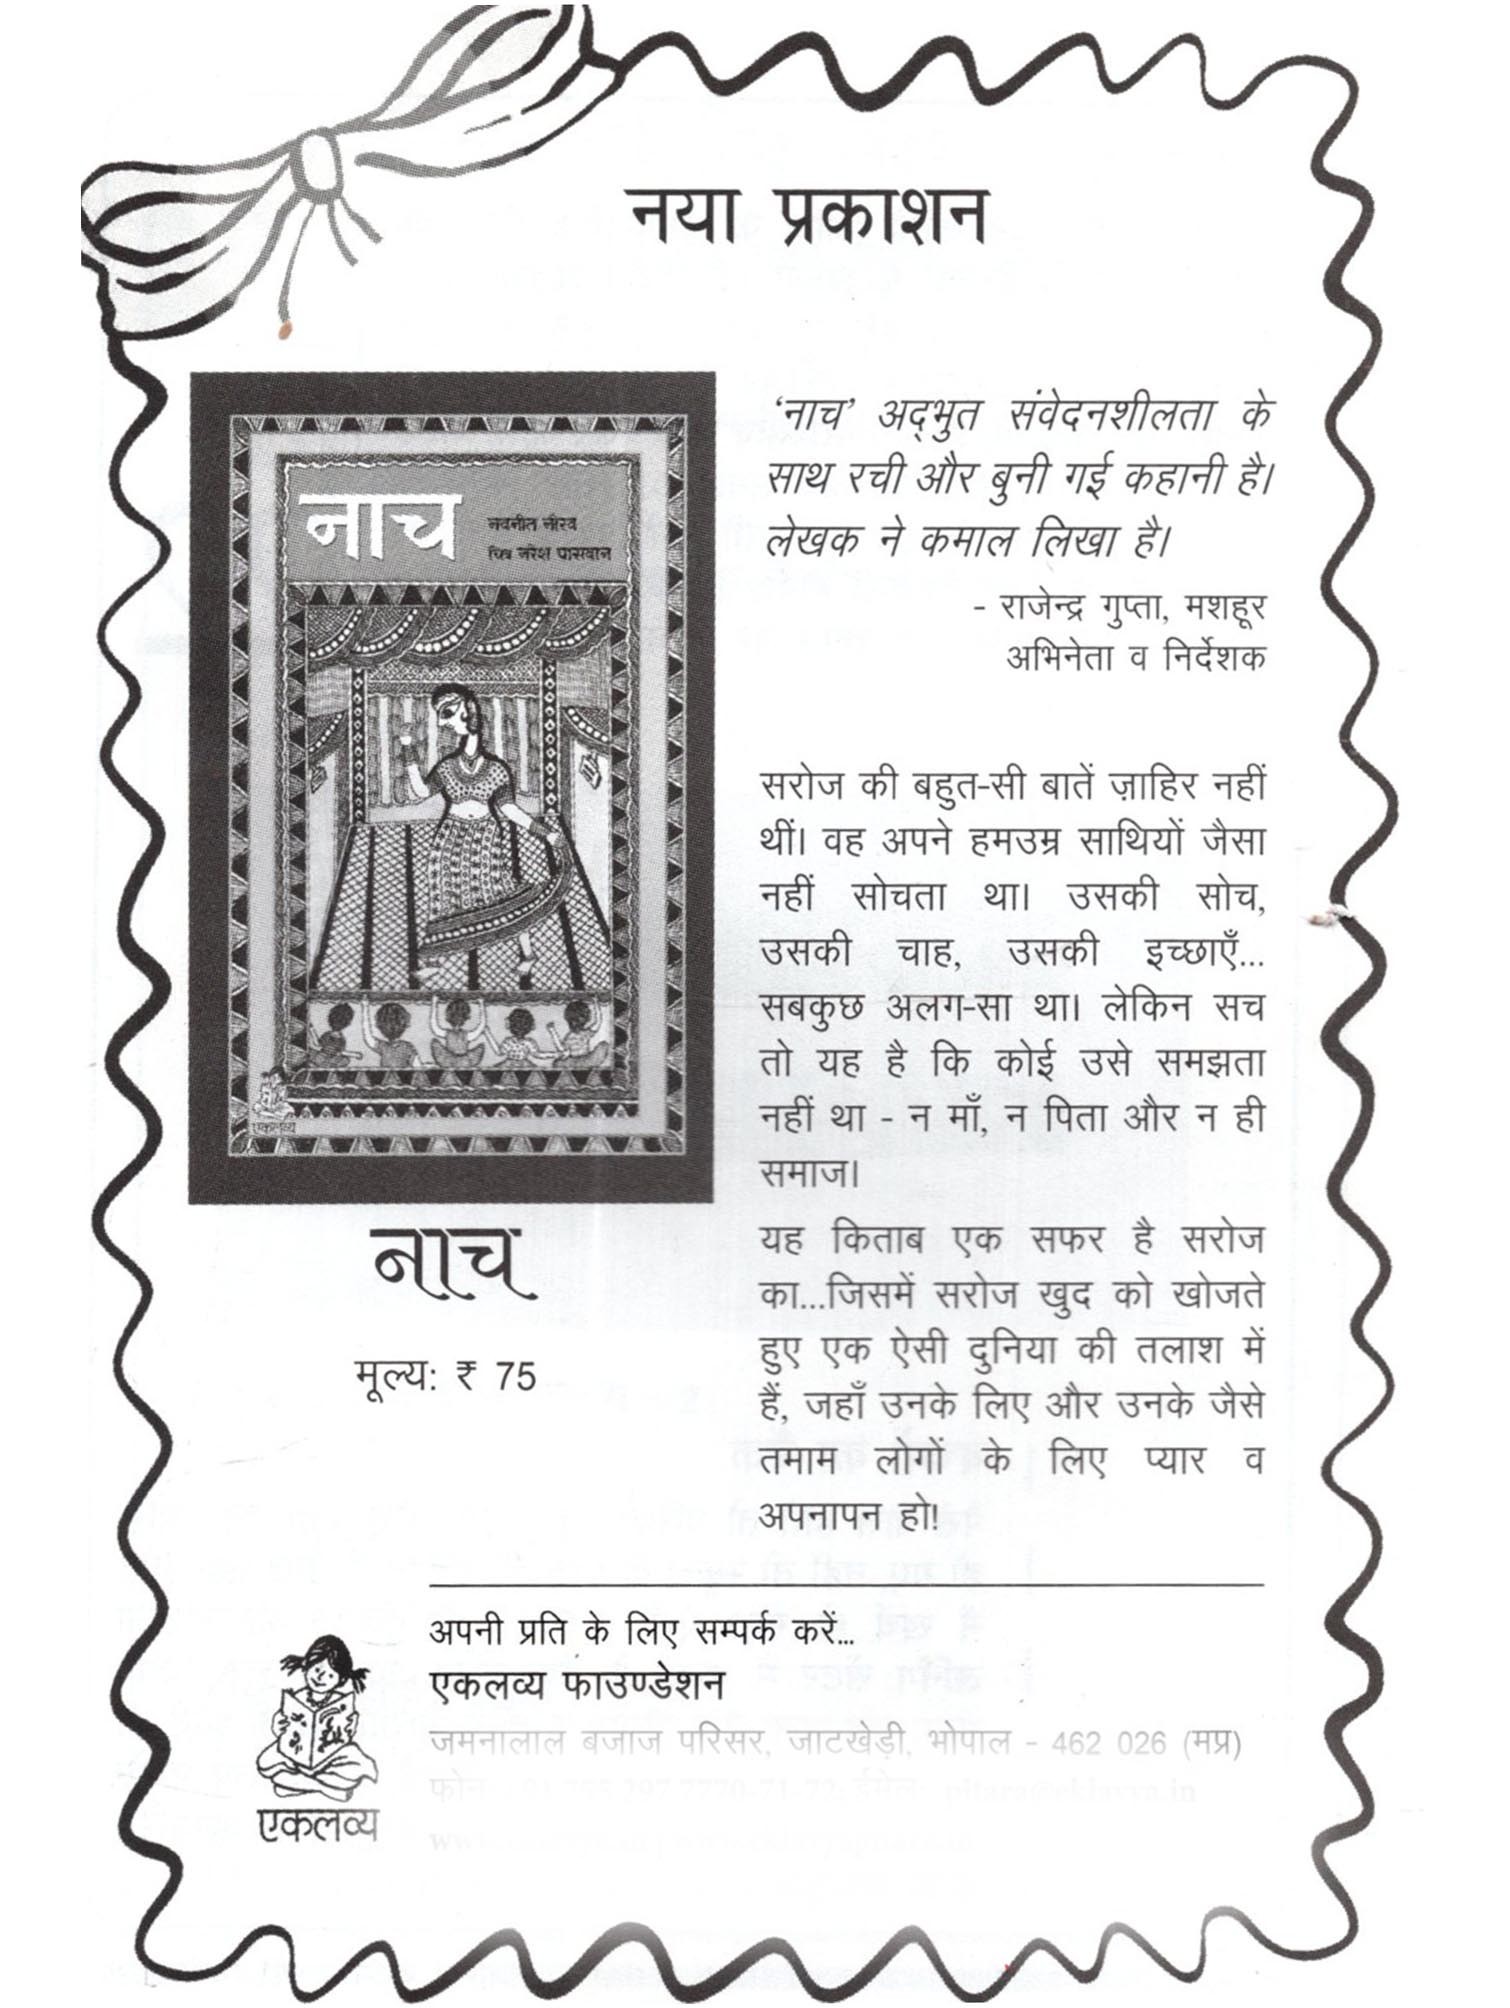 नया प्रकाशन
नाच
नवनीत नीरव
चित्र नरेश पासवान
एकलव्य
‘नाच’ अद्‌भुत संवेदनशीलता के
साथ रची और बुनी गई कहानी है।
लेखक ने कमाल लिखा है।
- राजेन्द्र गुप्ता, मशहूर
अभिनेता व निर्देशक
सरोज की बहुत-सी बातें ज़ाहिर नहीं
थीं। वह अपने हमउम्र साथियों जैसा
नहीं सोचता था। उसकी सोच,
उसकी चाह, उसकी इच्छाएँ...
सबकुछ अलग-सा था। लेकिन सच
तो यह है कि कोई उसे समझता
नहीं था - न माँ, न पिता और न ही
समाज।
यह किताब एक सफर है सरोज
का...जिसमें सरोज खुद को खोजते
हुए एक ऐसी दुनिया की तलाश में
हैं, जहाँ उनके लिए और उनके जैसे
तमाम लोगों के लिए प्यार व
अपनापन हो!
नाच
मूल्य: ₹ 75
अपनी प्रति के लिए सम्पर्क करें...
एकलव्य फाउण्डेशन
जमनालाल बजाज परिसर, जाटखेड़ी, भोपाल - 462 026 (मप्र)
फोन: +91 755 297 7770-71-72; ईमेल: pitara@eklavya.in
एकलव्य